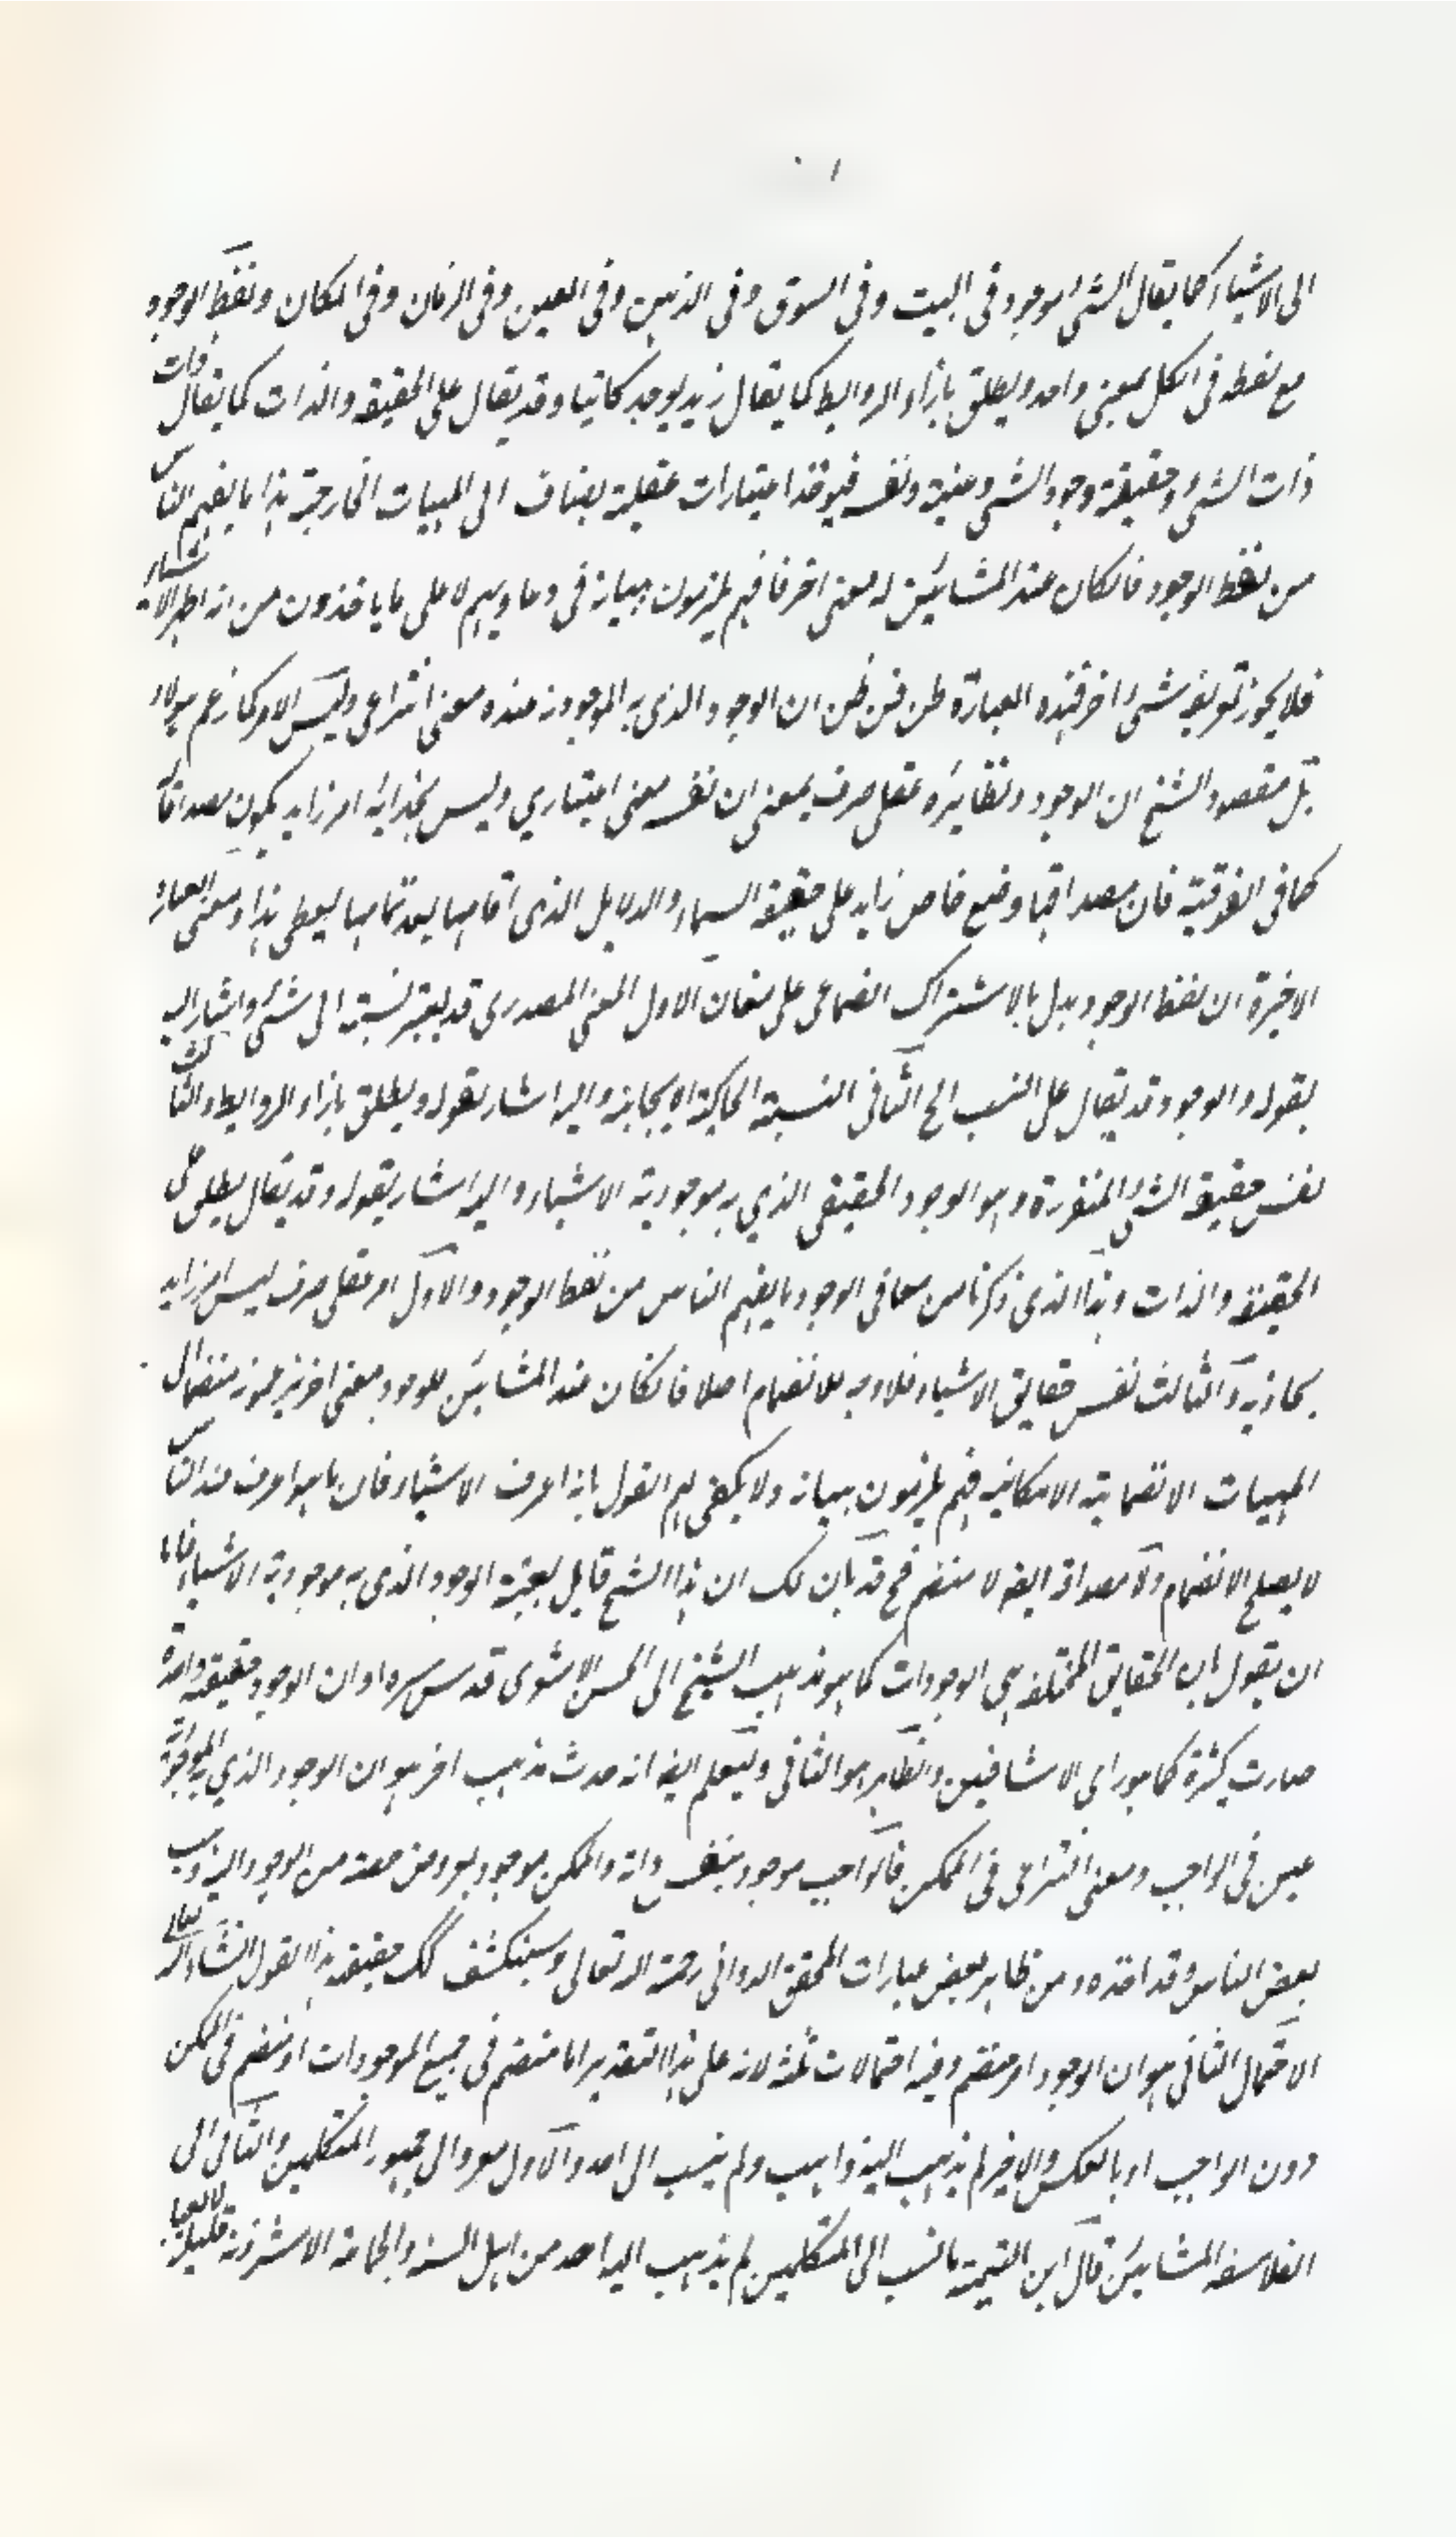 الى الاشياء كما يقال الشئ موجود فى البيت وفى السوق وفى الذهن وفى العين وفى الزمان وفى المكان ولفظ الوجود
مع لفظة فى الكل بمعنى واحد ويطلق بازاء الروابط كما يقال زيد يوجد كاتبا وقد يقال على الحقيقة والذات كما يقال ذات
ذات الشئ وحقيقة وجود الشئ وعينه ونفسه فيوخذ اعتبارات عقلية يضاف الى المهيات الخارجية هذا ما يفهم الناس
من لفظ الوجود فانكان عند المشائين له معنى اخر فافهم يلزمون بيانه فى دعاويهم لا على ما ياخذون من انه اظهر الاشياء
فلا يجوز تعريفه بشئ اخر فهذه العبارة ظن فمن ظن ان الوجود الذى به الموجودية عنده معنى انتزاعى وليس الامر كما زعم هولاء
بل مقصود الشيخ ان الوجود ونظائره عقلى صرف بمعنى ان نفسه معنى اعتبارى وليس بحذائه امر زايد يكون مصداقا
كما فى الفوقية فان مصداقها وضع خاص زايد على حقيقة السماء والدلايل الذى اقامها بعد تمامها يعطى هذا ومعنى العبارة
الاخيرة ان لفظ الوجود يدل بالاشتراك الصناعى على معان الاول المعنى المصدرى قد يعتبر نسبته الى شئ واشار اليه
بقوله والوجود قد يقال على النسب الخ الثانى النسبة الحاكية الايجابية واليه اشار بقوله ويطلق بازاء الروابط والثالث
نفس حقيقة الشئ المتقررة وهو الوجود الحقيقى الذى به موجودية الاشياء واليه اشار بقوله وقد يقال يطلق على
الحقيقة والذات وهذا الذى ذكرنا من معانى الوجود ما يفهم الناس من لفظ الوجود والاول امر عقلى صرف ليس امر زايد
بحاذيه والثالث نفس حقايق الاشياء فلا وجه للانضمام اصلا فانكان عند المشائين للوجود معنى اخر منضما الى
المهيات الانضمامية الامكانية فهم يلزمون ببيانه ولا يكفى لهم القول بانه اعرف الاشياء فان ما هو اعرف عند الناس
لا يصلح الانضمام ولا مصداقه ايضا لا منضم فح قد بان لك ان هذا الشيخ قايل بعينية الوجود الذى به موجودية الاشياء فاما
ان يقول بان الحقايق المختلفة هى الوجودات كما هو مذهب الشيخ ابى الحسن الاشعرى قدس سره او ان الوجود حقيقة واحدة
صارت كثرة كما هو راى الاشراقيين والظاهر هو الثانى وليعلم ايضا انه حدث مذهب اخر هو ان الوجود الذى به الموجودية
عين فى الواجب ومعنى انتزاعى فى الممكن فالواجب موجود بنفس ذاته والممكن موجود بعروض حصة من الوجود اليه ذهب
بعض الناس وقد اخذه من ظاهر بعض عبارات المحقق الدوانى رحمة الله تعالى وسينكشف لك حقيقة هذا القول انشاء الله تعالى
الاحتمال الثانى هو ان الوجود امر منضم وفيه احتمالات ثلثة لانه على هذا التقدير اما منضم فى جميع الموجودات او منضم فى الممكن
دون الواجب او بالعكس والاخير لم يذهب اليه ذاهب ولم ينسب الى احد والاول معزو الى جمهور المتكلمين والثانى الى
الفلاسفة المشائين قال ابن القيمة ما نسب الى المتكلمين لم يذهب اليه احد من اهل السنة والجماعة الاشرذمة قليلة